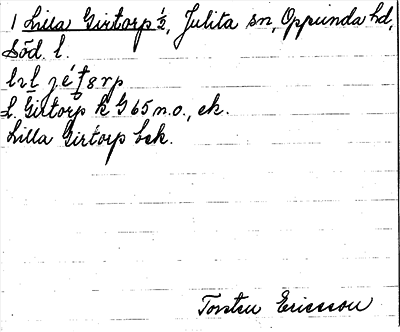 1 Lilla Girtorp ½, Julita sn, Oppunda hd,
Söd. l.
L. Girtorp k G 65 n.o., ek.
Lilla Girtorp bek.
Torsten Ericsson